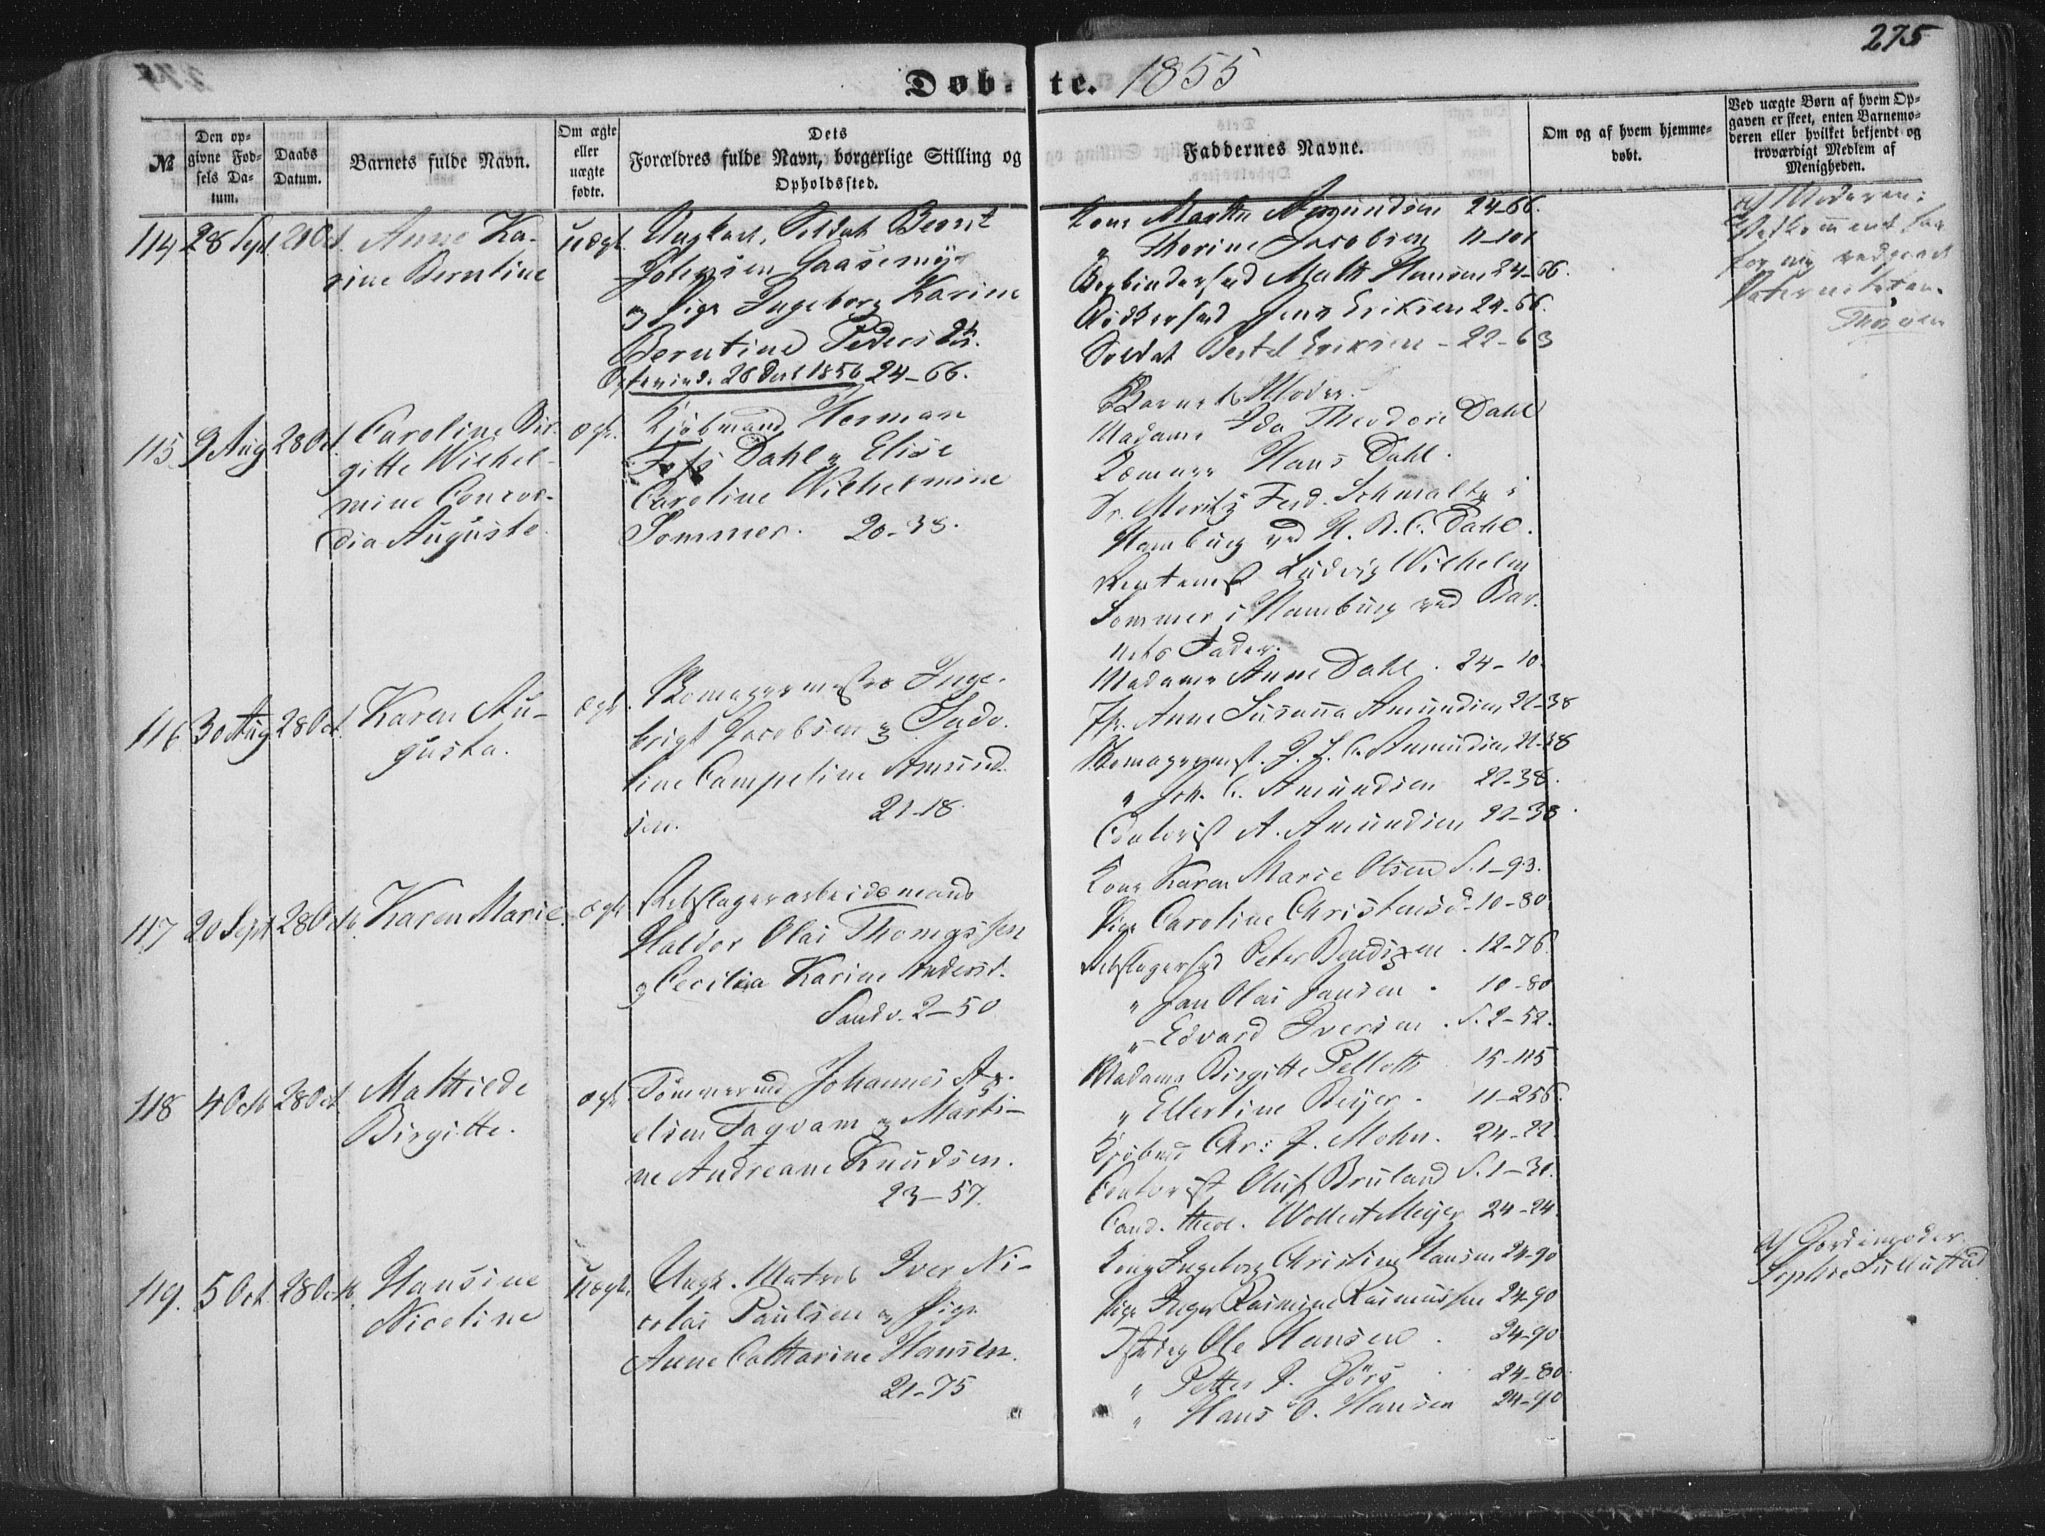 275
Døbte. 1855
№
Den opgivne Fødsels Datum.
Daabs Datum.
Barnets fulde Navn.
Om ægte eller uægte fødte.
Dets Forældres fulde Navn, borgerlige Stilling og Opholdssted.
Faddernes Navne.
Om og af hvem hjemmedøbt.
Ved uægte Børn af hvem Opgaven er skeet, enten Barnemoderen eller hvilket bekjendt og troværdigt Medlem af Menigheden.
114 28 Sept. 21 Oct. Anne Ka-
rine Berntine
uægt.
Ungkarl, Soldat Bernt
og Pige Ingeborg Karine
Berntine Pedersdtr.
26 1856 24-66.
Kone Marthe Amundsen 24-66.
" Thorine Jacobsen 11-101
Math Hansen 24-66.
Jens Eriksen 24-66.
Soldat Bertel Eriksen - 22-63
af Moderen:
115. 9 Aug 28 Oct. Caroline Bir-
gitte Wilhel-
mine Concor-
dia Auguste.
ægt.
Kjøbmand Herman
Foss Dahl og Elise
Caroline Wilhelmine
Sommer. 20-38.
Barnets Moder.
Madame Ida Theodore Dahl
Hans Dahl.
Dr. Moritz Ferd. Schmaltz i
Hamburg ved H. B. C. Dahl.
Ludvig Wilhelm
Sommer i Hamburg ved Bar-
nets Fader.
116 30 Aug 28 Oct. Karen Au-
gusta.
ægt.
Skomagermester Inge-
brigt Jacobsen og
line Campeline Amund-
sen. 21-18.
Madame Anne Dahl. 24-10.
Fr. Anne Susanna Amundsen 22-38
Skomagermst. J. L. C. Amundsen 22-38
" Joh. C. Amundsen 22-38.
Contorist A. Amundsen 22-38.
117 20 Sept. 28 Octb. Karen Marie.
ægt.
Rebslagerarbeidsmand
Haldor Olai Thomassen
og Cecilia Karine Andersd.
Sandv. 2-50
Kone Karen Marie Olsen S. 1-93.
Pige Caroline Christensd. 10-80.
Rebslagersvd Peter Bendixen. 12-76.
" Jan Olai Jansen. 10-80
" Edvard Iversen. S. 2-52.
118 4 Octb 28 Oct. Mathilde
Birgitte.
ægt.
Tømmermd Johannes Ax-
elsen Fagvam og Marti-
ne Andreane Knudsen.
23-57.
Madame Birgitte Pelleth 15-115
" Ellertine Beijer. 11-256.
Kjøbmd Chr: J. Mohn. 24-22
Contorist Oluf Bruland S. 1-30.
Cand. theol. Wollert Meyer 24-24.
119. 5 Oct. 28 Octb. Hansine
Nicoline
uægt.
Ungk. Matros Iver Ni-
colai Paulsen og Pige
Anne Catharine Hansen.
21-75
Kone Ingeborg Christine Hansen 24-90
Pige Inger Rasmine Rasmussen 24-90
Ole Hansen. 24-90
" Petter J. Jörg 24-80.
" Hans O. Hansen 24-90
Af Jordemoder
Sophie Lullustad